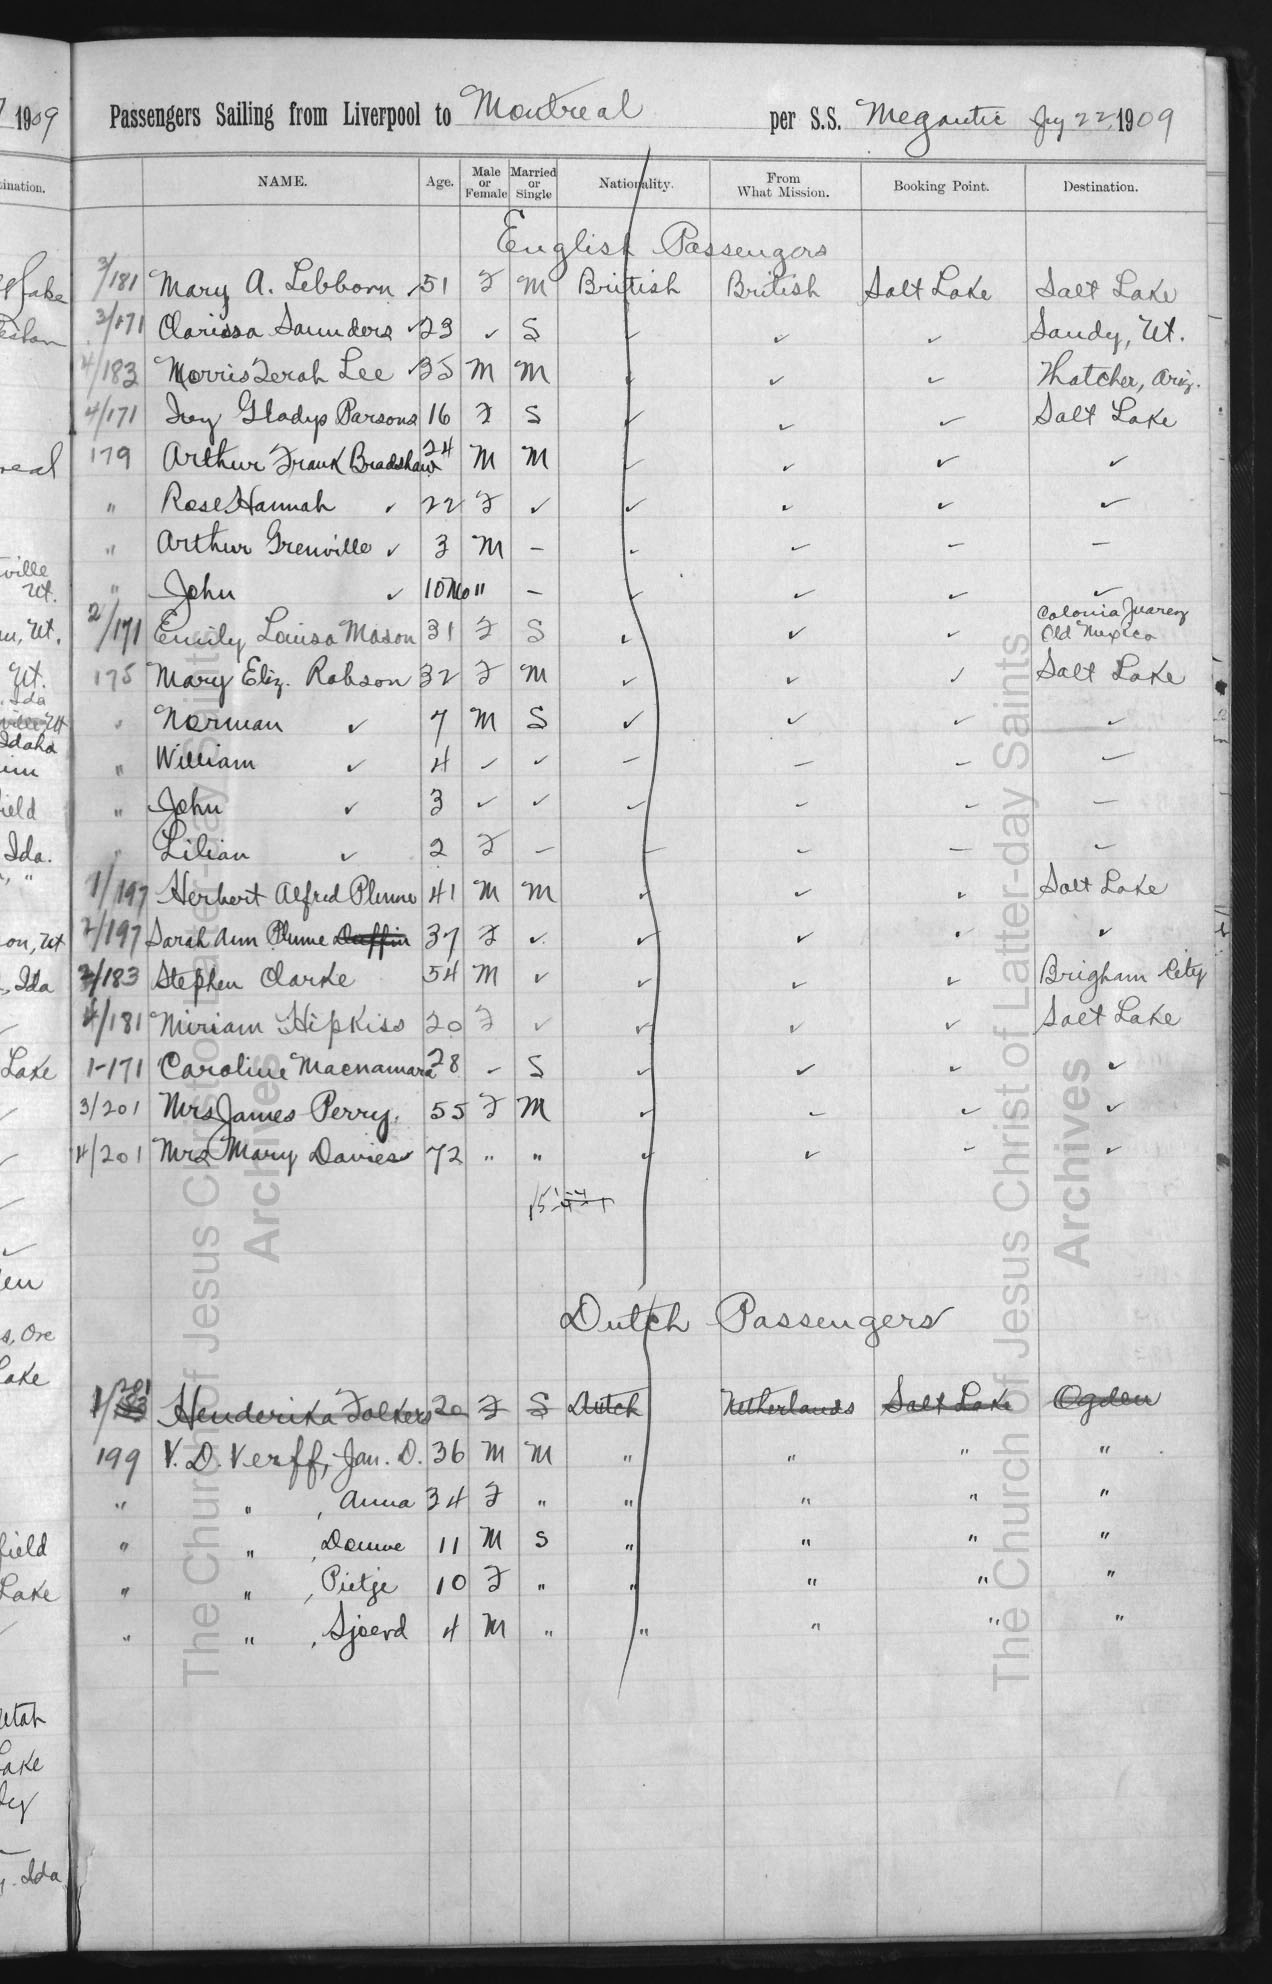 Passengers Sailing from Liverpool to Montreal per S.S. Megantic Jy 22, 1909
NAME. Age. Male or Female Married or Single Nationality. From What Mission. Booking Point. Destination.
English Passengers
3/181 Mary A. Lebborn ✓ 51 F M British British Salt Lake Salt Lake
3/171 Clarissa Saunders ✓ 23 ✓ S ✓ ✓ ✓ Sandy, Ut.
4/183 Morris Zerah Lee ✓ 35 M M ✓ ✓ ✓ Thatcher, Ariz.
4/171 Ivy Gladys Parsons 16 F S ✓ ✓ ✓ Salt Lake
179 Arthur Frank Bradshaw 24 M M ✓ ✓ ✓ ✓
" Rose Hannah ✓ 22 F ✓ ✓ ✓ ✓ ✓
" Arthur Grenville ✓ 3 M – ✓ – – –
" John ✓ 10 Mo " – ✓ ✓ ✓ ✓
2/171 Emily Louisa Mason 31 F S ✓ ✓ ✓ Colonia Juarez Old Mexico
175 Mary Eliz. Robson 32 F M ✓ ✓ ✓ Salt Lake
" Norman ✓ 7 M S ✓ ✓ ✓ ✓
" William ✓ 4 ✓ ✓ – – – –
" John ✓ 3 ✓ ✓ ✓ – ✓ –
" Lilian ✓ 2 F – – ✓ – ✓
1/197 Herbert Alfred Plume 41 M M ✓ ✓ ✓ Salt Lake
2/197 Sarah Ann Plume Duffin 37 F ✓ ✓ ✓ ✓ ✓
2/183 Stephen Clarke 54 M ✓ ✓ ✓ ✓ Brigham City
4/181 Miriam Hipkiss 20 F ✓ ✓ ✓ ✓ Salt Lake
1-171 Caroline Macnamara 28 ✓ S ✓ ✓ ✓ ✓
3/201 Mrs James Perry. 55 F M ✓ – ✓ ✓
4/201 Mrs Mary Davies ✓ 72 " " ✓ ✓ – ✓
Dutch Passengers
1/201 Henderika Folkers 20 F S Dutch Netherlands Salt Lake Ogden
199 V. D. Verff, Jan. D. 36 M M " " " "
" " , Anna 34 F " " " " "
" " , Douwe 11 M S " " " "
" " , Pietje 10 F " " " " "
" " , Sjoerd 4 M " " " " "
The Church of Jesus Christ of Latter-day Saints
Archives
The Church of Jesus Christ of Latter-day Saints
Archives